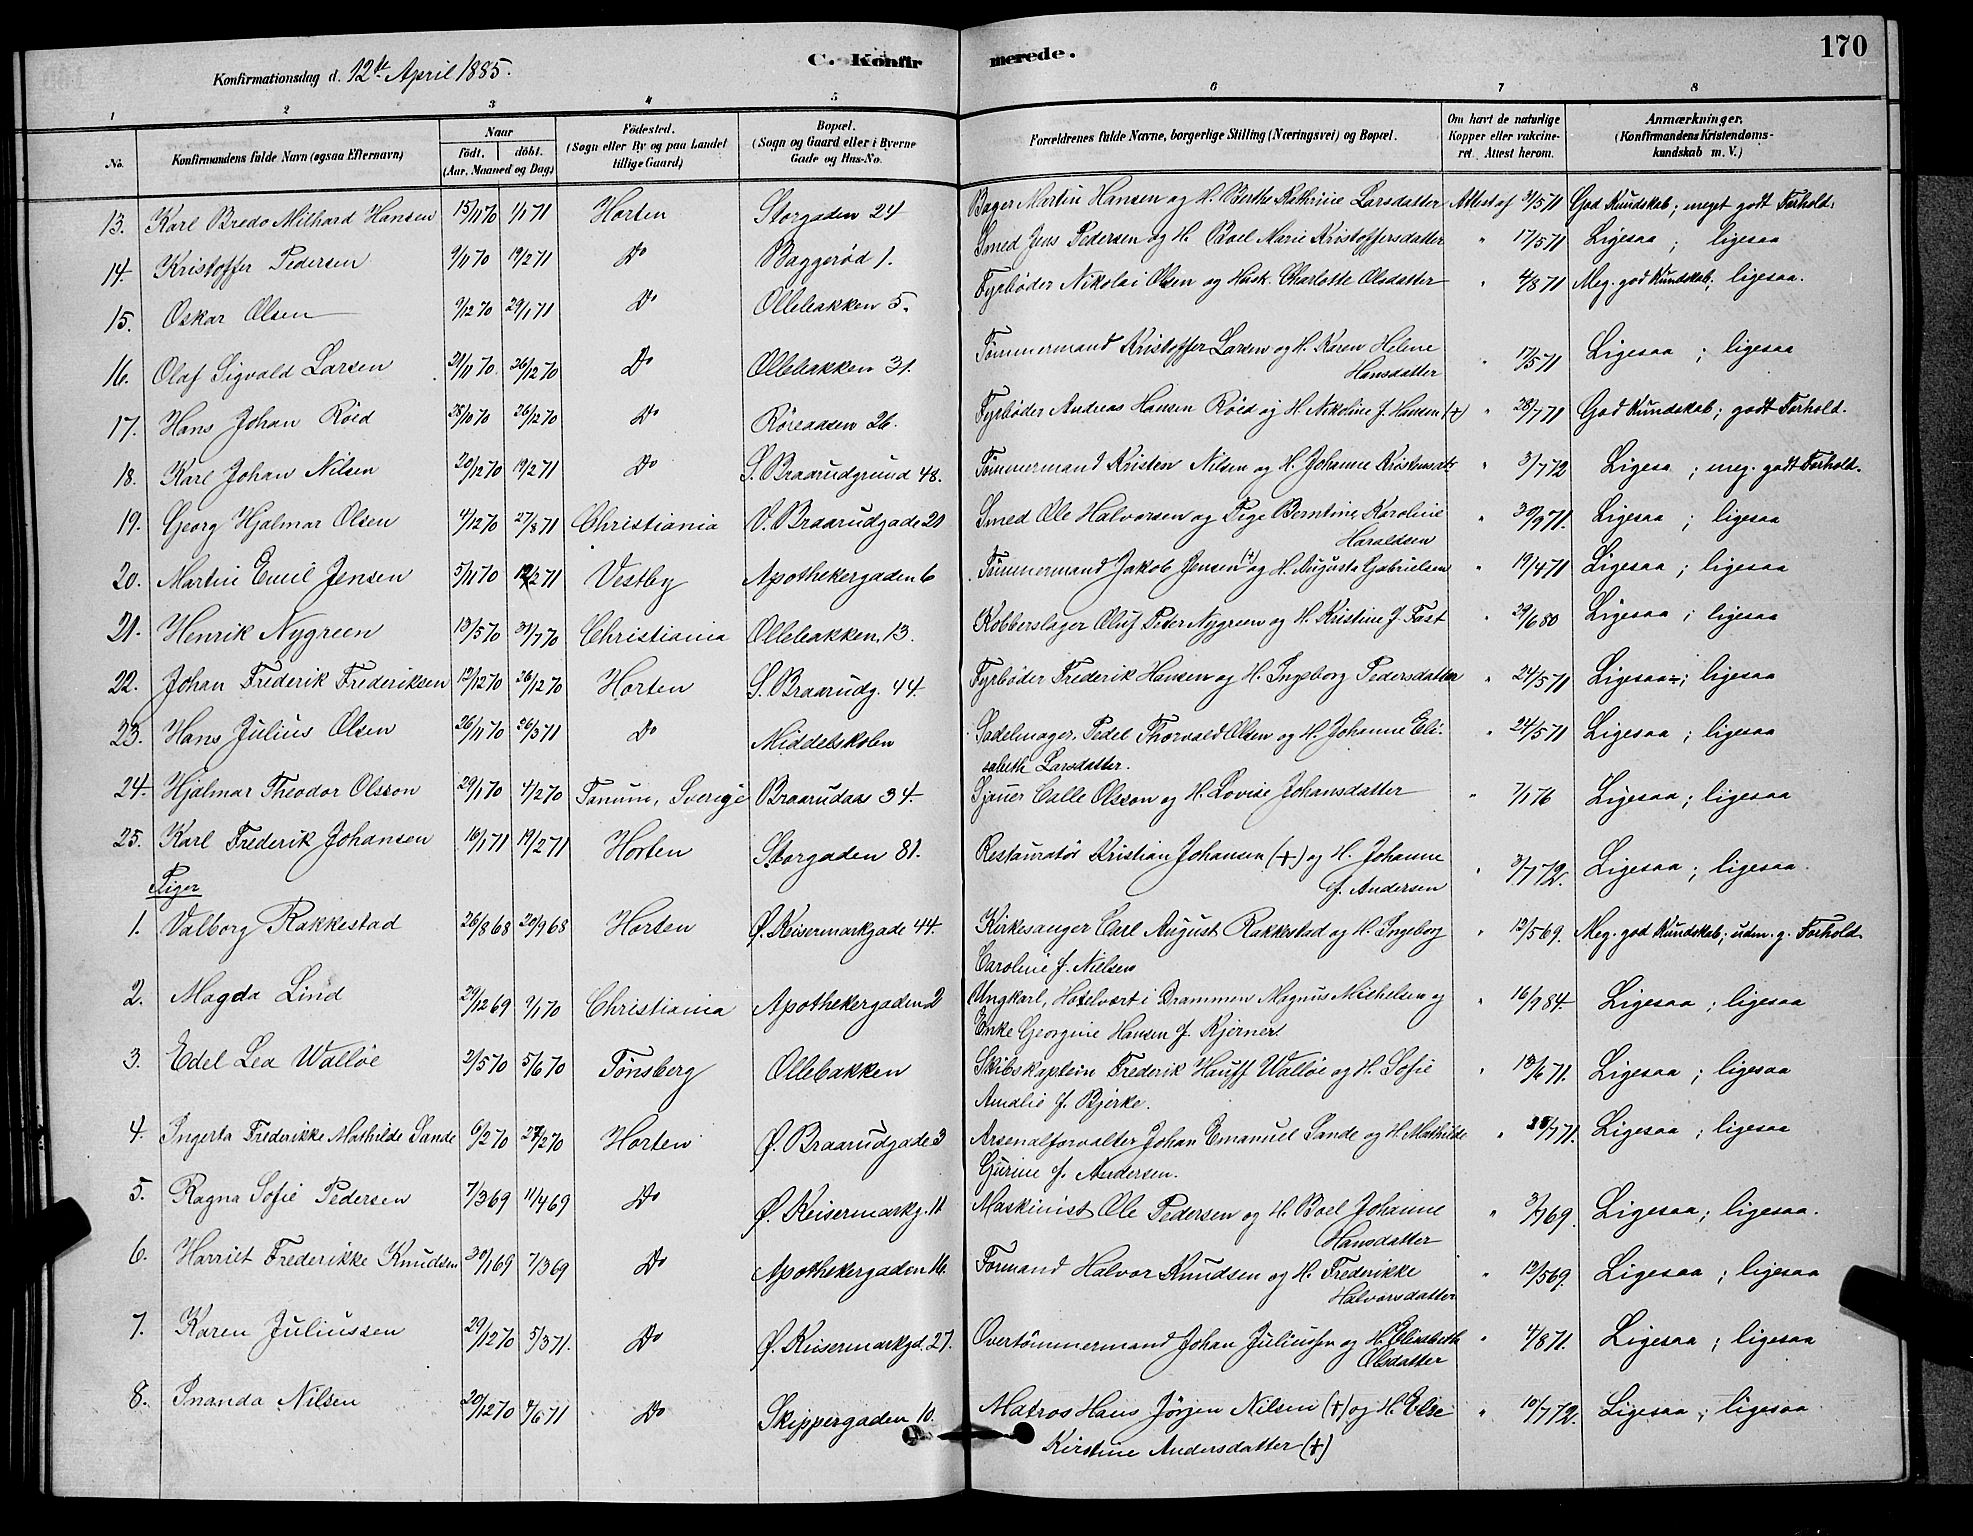 170
Konfirmationsdag d. 12te April 1885.
C. Konfirmerede.
1 2 3 4 5 6 7 8
No. Konfirmandens fulde Navn (ogsaa Efternavn) Naar født, døbt. (Aar, Maaned og Dag) Fødested. (Sogn eller By og paa Landet tillige Gaard) Bopæl. (Sogn og Gaard eller i Byerne Gade og Hus-No. Forældrenes fulde Navne, borgerlige Stilling (Næringsvei) og Bopæl. Om havt de naturlige Kopper eller vakcineret. Attest herom. Anmærkninger. (Konfirmandens Kristendomskundskab m. V.)
13. Karl Bredo Milhard Hansen 15/11 70 1/1 71 Horten Storgaden 24 Bager Martin Hansen og H. Berthe Kathrine Larsdatter Attest af 3/5 71 God Kundskab; meget godt Forhold.
14. Kristoffer Pedersen 9/11 70 19/2 71 Do Baggerød 1. Smed Jens Pedersen og H. Boel Marie Kristoffersdatter " 17/5 71 Ligesaa ; ligesaa
15. Oskar Olsen 9/12 70 29/1 71 Do Ollebakken 5. Fyrbøder Nikolai Olsen og Husk. Charlotte Olsdatter " 4/8 71 Meg. god Kundskab; ligesaa.
16. Olaf Sigvald Larsen 21/11 70. 26/12 70 Do Ollebakken 31. Tømmermand Kristoffer Larsen og H. Karen Helene
Hansdatter " 17/5 71 Ligesaa ; ligesaa
17. Hans Johan Röed 28/11 70 26/12 70 Do Röreaasen 26. Fyrbøder Andreas Hansen Röed og H. Nikoline f. Hansen (+) " 28/7 71 God Kundskab; godt Forhold.
18. Karl Johan Nilsen 20/12 70 19/2 71 Do S. Braarudgrund 48. Tømmermand Kristen Nilsen og H. Johanne " 3/7 72 Ligesa ; meg. godt Forhold.
19. Georg Hjalmar Olsen 4/12 70 27/8 71 Christiania V. Braarudgade 20 Smed Ole Halvorsen og Pige Berntine Karoline
Haraldsen " 30/9 71. Ligesaa ; ligesaa
20. Martin Emil Jensen 5/11 70 12/2 71 Vestby Apothekergaden 6 Tømmermand Jakob Jensen (+) og H. Augusta Gabrielsen " 19/4 71 Ligesaa ; ligesaa
21. Henrik Nygreen 13/5 70 31/7 70 Christiania Ollebakken 13. Kobberslager Oluf Peter Nygreen og H. Kristine f. Fast " 29/6 80 Ligesaa ; ligesaa
22. Johan Frederik Frederiksen 12/12 70 26/12 70 Horten S. Braarudg. 44. Fyrbøder Frederik Hansen og H. Ingeborg Pedersdatter " 24/5 71 Ligesaa ; ligesaa
23. Hans Julius Olsen 26/11 70 26/3 71 Do Middelskolen Sadelmager, Pedel Thorvald Olsen og H. Johanne Eli-
sabeth Larsdatter. " 24/5 71 Ligesaa ; ligesaa
24. Hjalmar Theodor Olsson 29/1 70 4/2 70 Tanum, Sverige Braarudaas 34. Sjauer Calle Olsson og H. Lovise Johansdatter " 7/1 76 Ligesaa ; ligesaa
25. Karl Frederik Johansen 16/1 71 19/2 71 Horten Storgaden 81. Restauratør Kristian Johansen (+) og H. Johanne
f. Andersen " 3/7 72. Ligesaa ; ligesaa.
Piger
1. Valborg Rakkestad 26/8 68 20/9 68 Horten Ø. Keisermarkgade 44. Kirkesanger Carl August Rakkestad og H. Ingeborg
Caroline f. Nielsen " 12/5 69. Meg. god Kundskab; udm. g. Forhold.
2. Magda Lind 29/12 69 9/1 70 Christiania Apothekergaden 2 Ungkarl, Hotelvært i Drammen Magnus Michelsen og
Enke Georgine Hansen f. Kjerner " 16/9 84. Ligesaa ; ligesaa
3. Edel Lea Walløe 2/5 70 5/6 70 Tønsberg Ollebakken Skibskaptein Frederik Hauff Walløe og H. Sofie
Amalie f. Bjerke. " 13/6 71. Ligesaa ; ligesaa
4. Ingerta Frederikke Mathilde Sande 6/2 70 27/2 70 Horten Ø. Braarudgade 3 Arsenalforvalter Johan Emanuel Sande og H. Mathilde
Gurine f. Andersen. " Ligesaa ; ligesaa
5. Ragna Sofie Pedersen 7/3 69 11/4 69 Do Ø. Keisermarkg. 11 Maskinist Ole Pedersen og H. Boel Johanne
Hansdatter " 3/7 69. Ligesaa ; ligesaa.
6. Harriet Frederikke Knudsen 30/1 69 7/3 69 Do Apothekergaden 16. Formand Halvor Knudsen og H. Frederikke
Halvorsdatter " 12/5 69. Ligesaa ; ligesaa
7. Karen Juliussen 29/12 70 5/3 71. Do Ø. Keisermarkgd. 27. Overtømmermand Johan Juliussen og H. Elisabeth
Olsdatter " 4/8 71. Ligesaa ; ligesaa
8. Inanda Nilsen 20/12 70 4/6 71 Do Skippergaden 10. Matros Hans Jörgen Nilsen (+) og H. Else
Kirstine Andersdatter (+) " 10/7 72. Ligesaa ; ligesaa